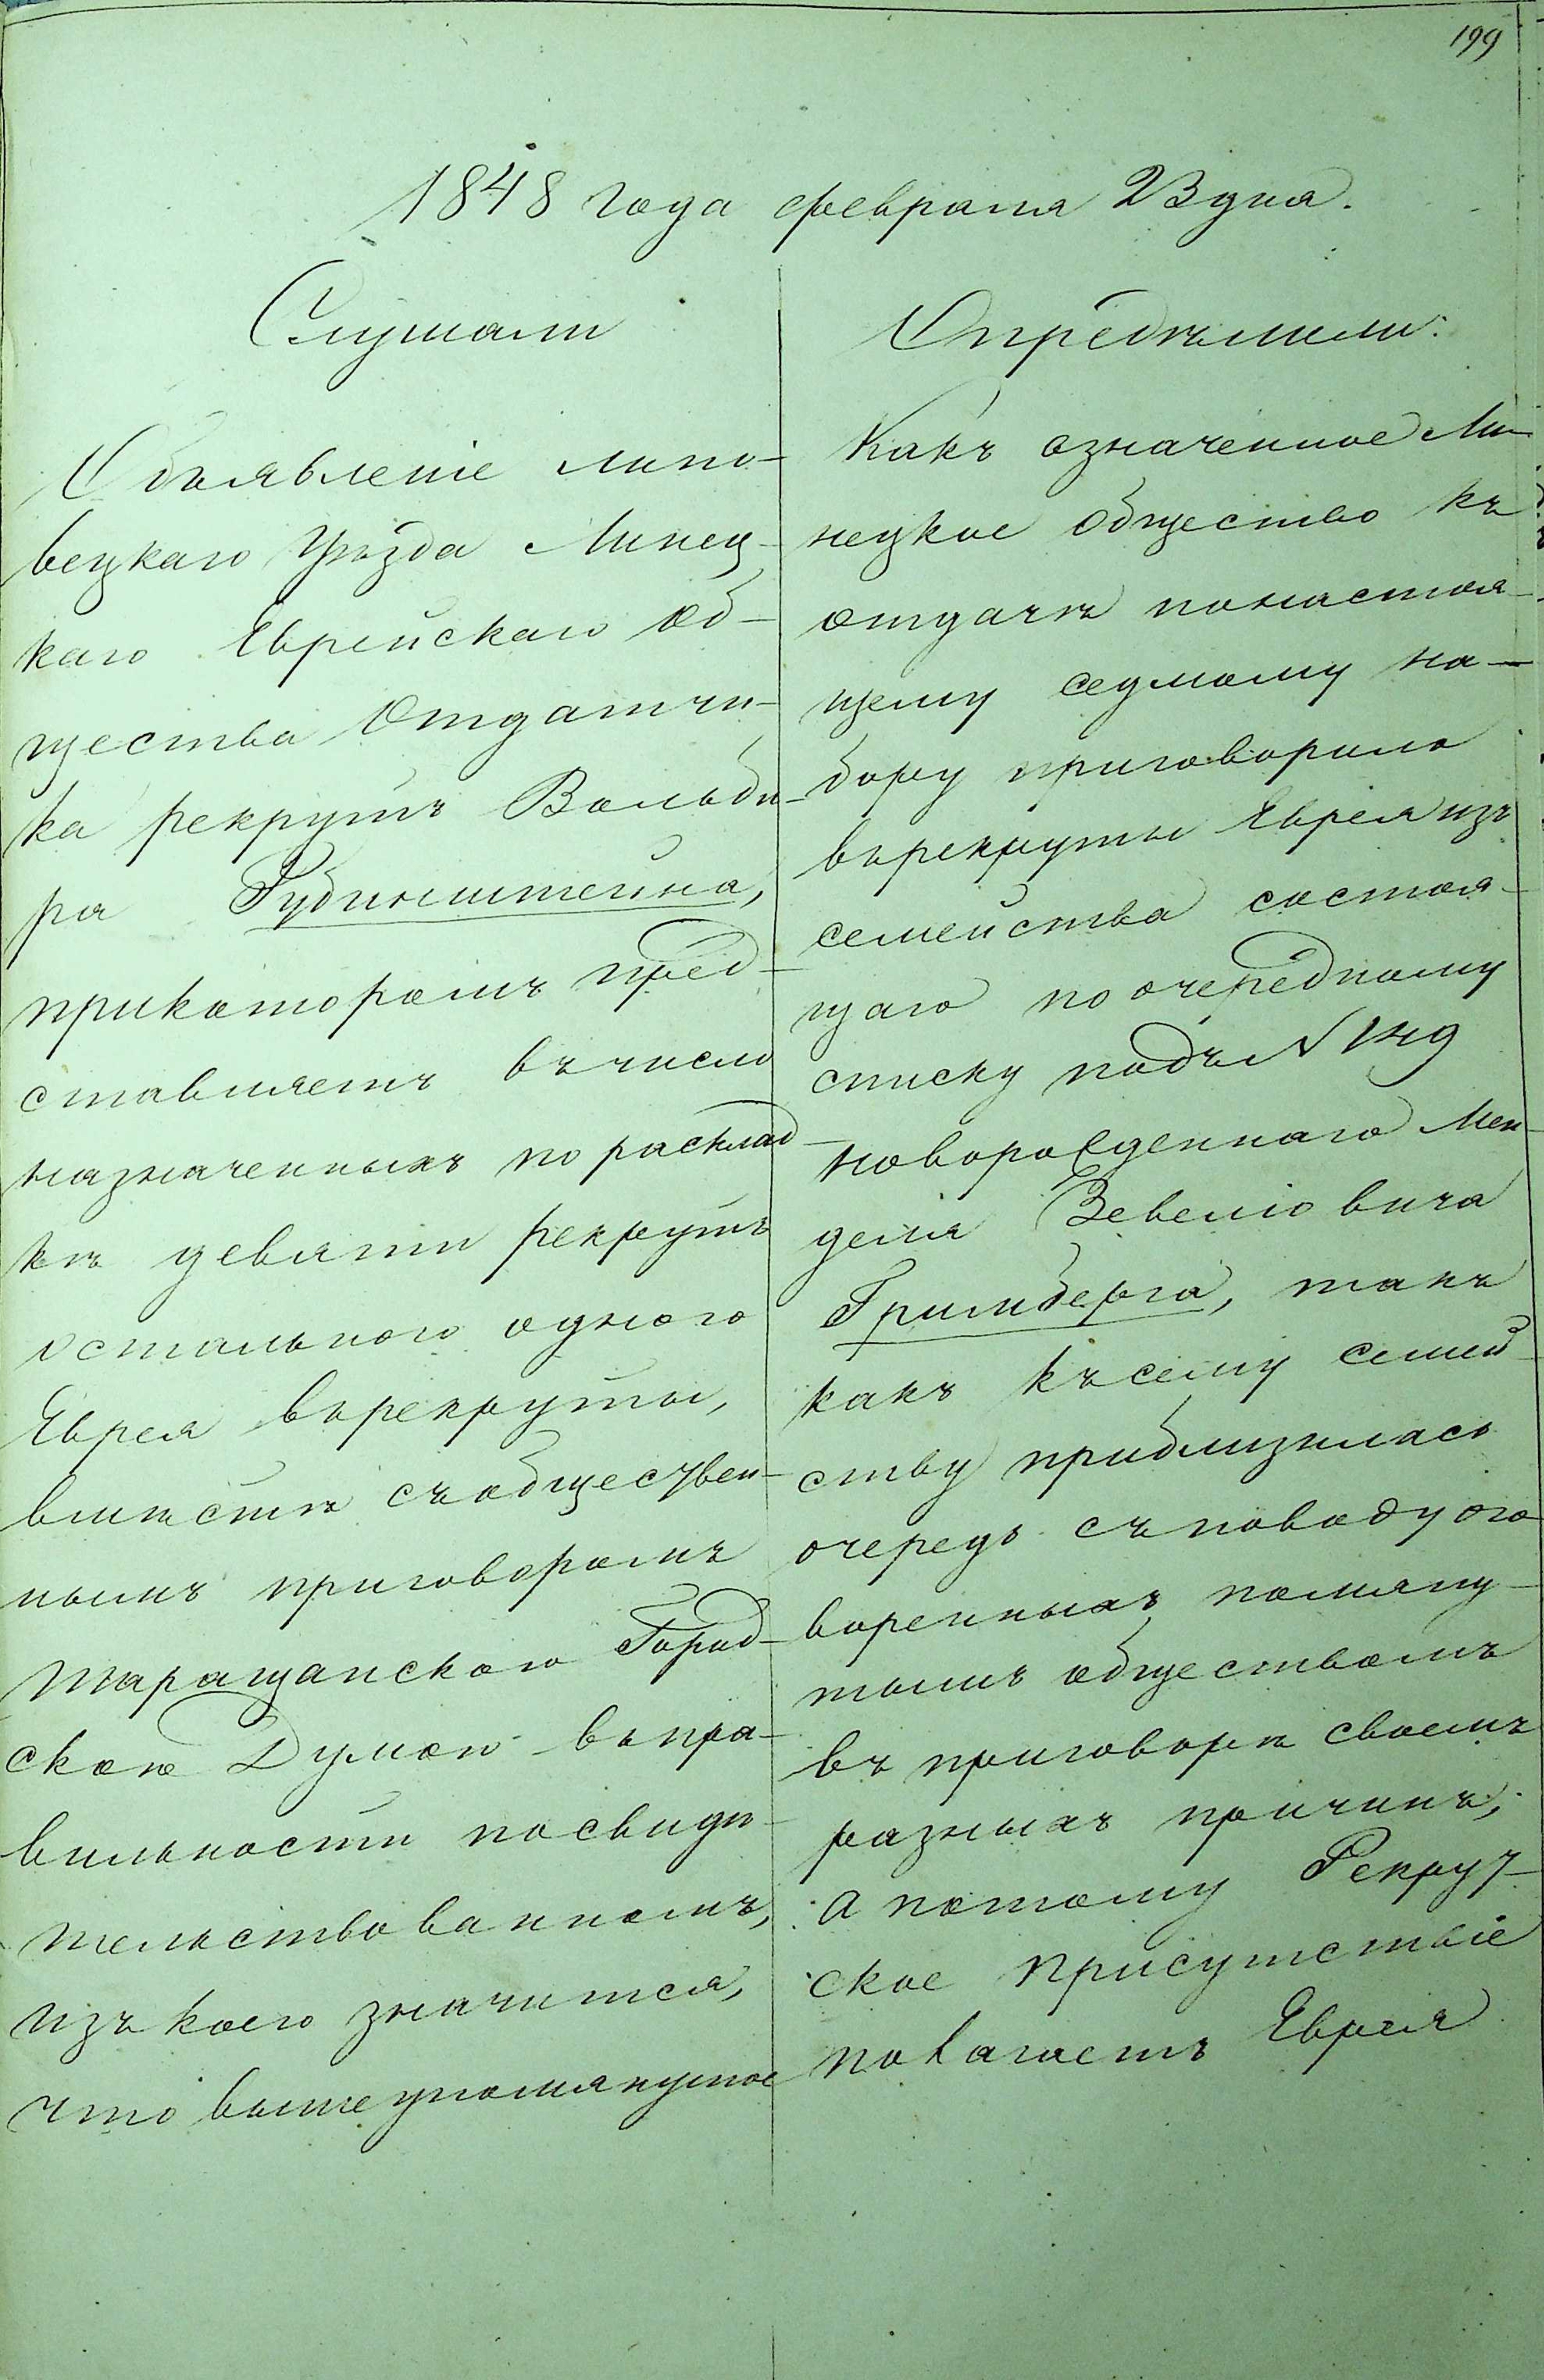 199
1848 года февраля 23 дня.
Слушали
Объявленіе липо-
вецкаго Уѣзда Линец-
каго Еврейскаго Об-
щества Отдатчи-
ка рекрутъ Вольбе-
ра Рубинштейна,
прикоторомъ пред-
ставляетъ въ число
назначенныхъ по расклад-
кѣ девяти рекрутъ
остального одного
Еврея върекруты,
вмѣстѣ съобществен-
нымъ приговоромъ
Таращанскою Город-
скою Думою въпра-
вильности посвидѣ-
тельствованномъ,
изъ коего значится,
что вышеупомянутое
Опредѣлили:
Какъ означенное Ли-
нецкое общество къ
отдачѣ понастоя-
щему седмому на-
бору приговорило
върекруты Еврея изъ
семейства состоя-
щаго по очередному
списку подъ №
новорожденнаго Мен-
деля Зевелiовича
Гримберга, такъ
какъ къ сему семей-
ству приблизилась
очередь съповоду ого-
воренныхъ помяну-
тымъ обществомъ
въ приговорѣ своемъ
разныхъ причинъ,
а потому Рекрут-
ское присутствіе
полагаетъ Еврея